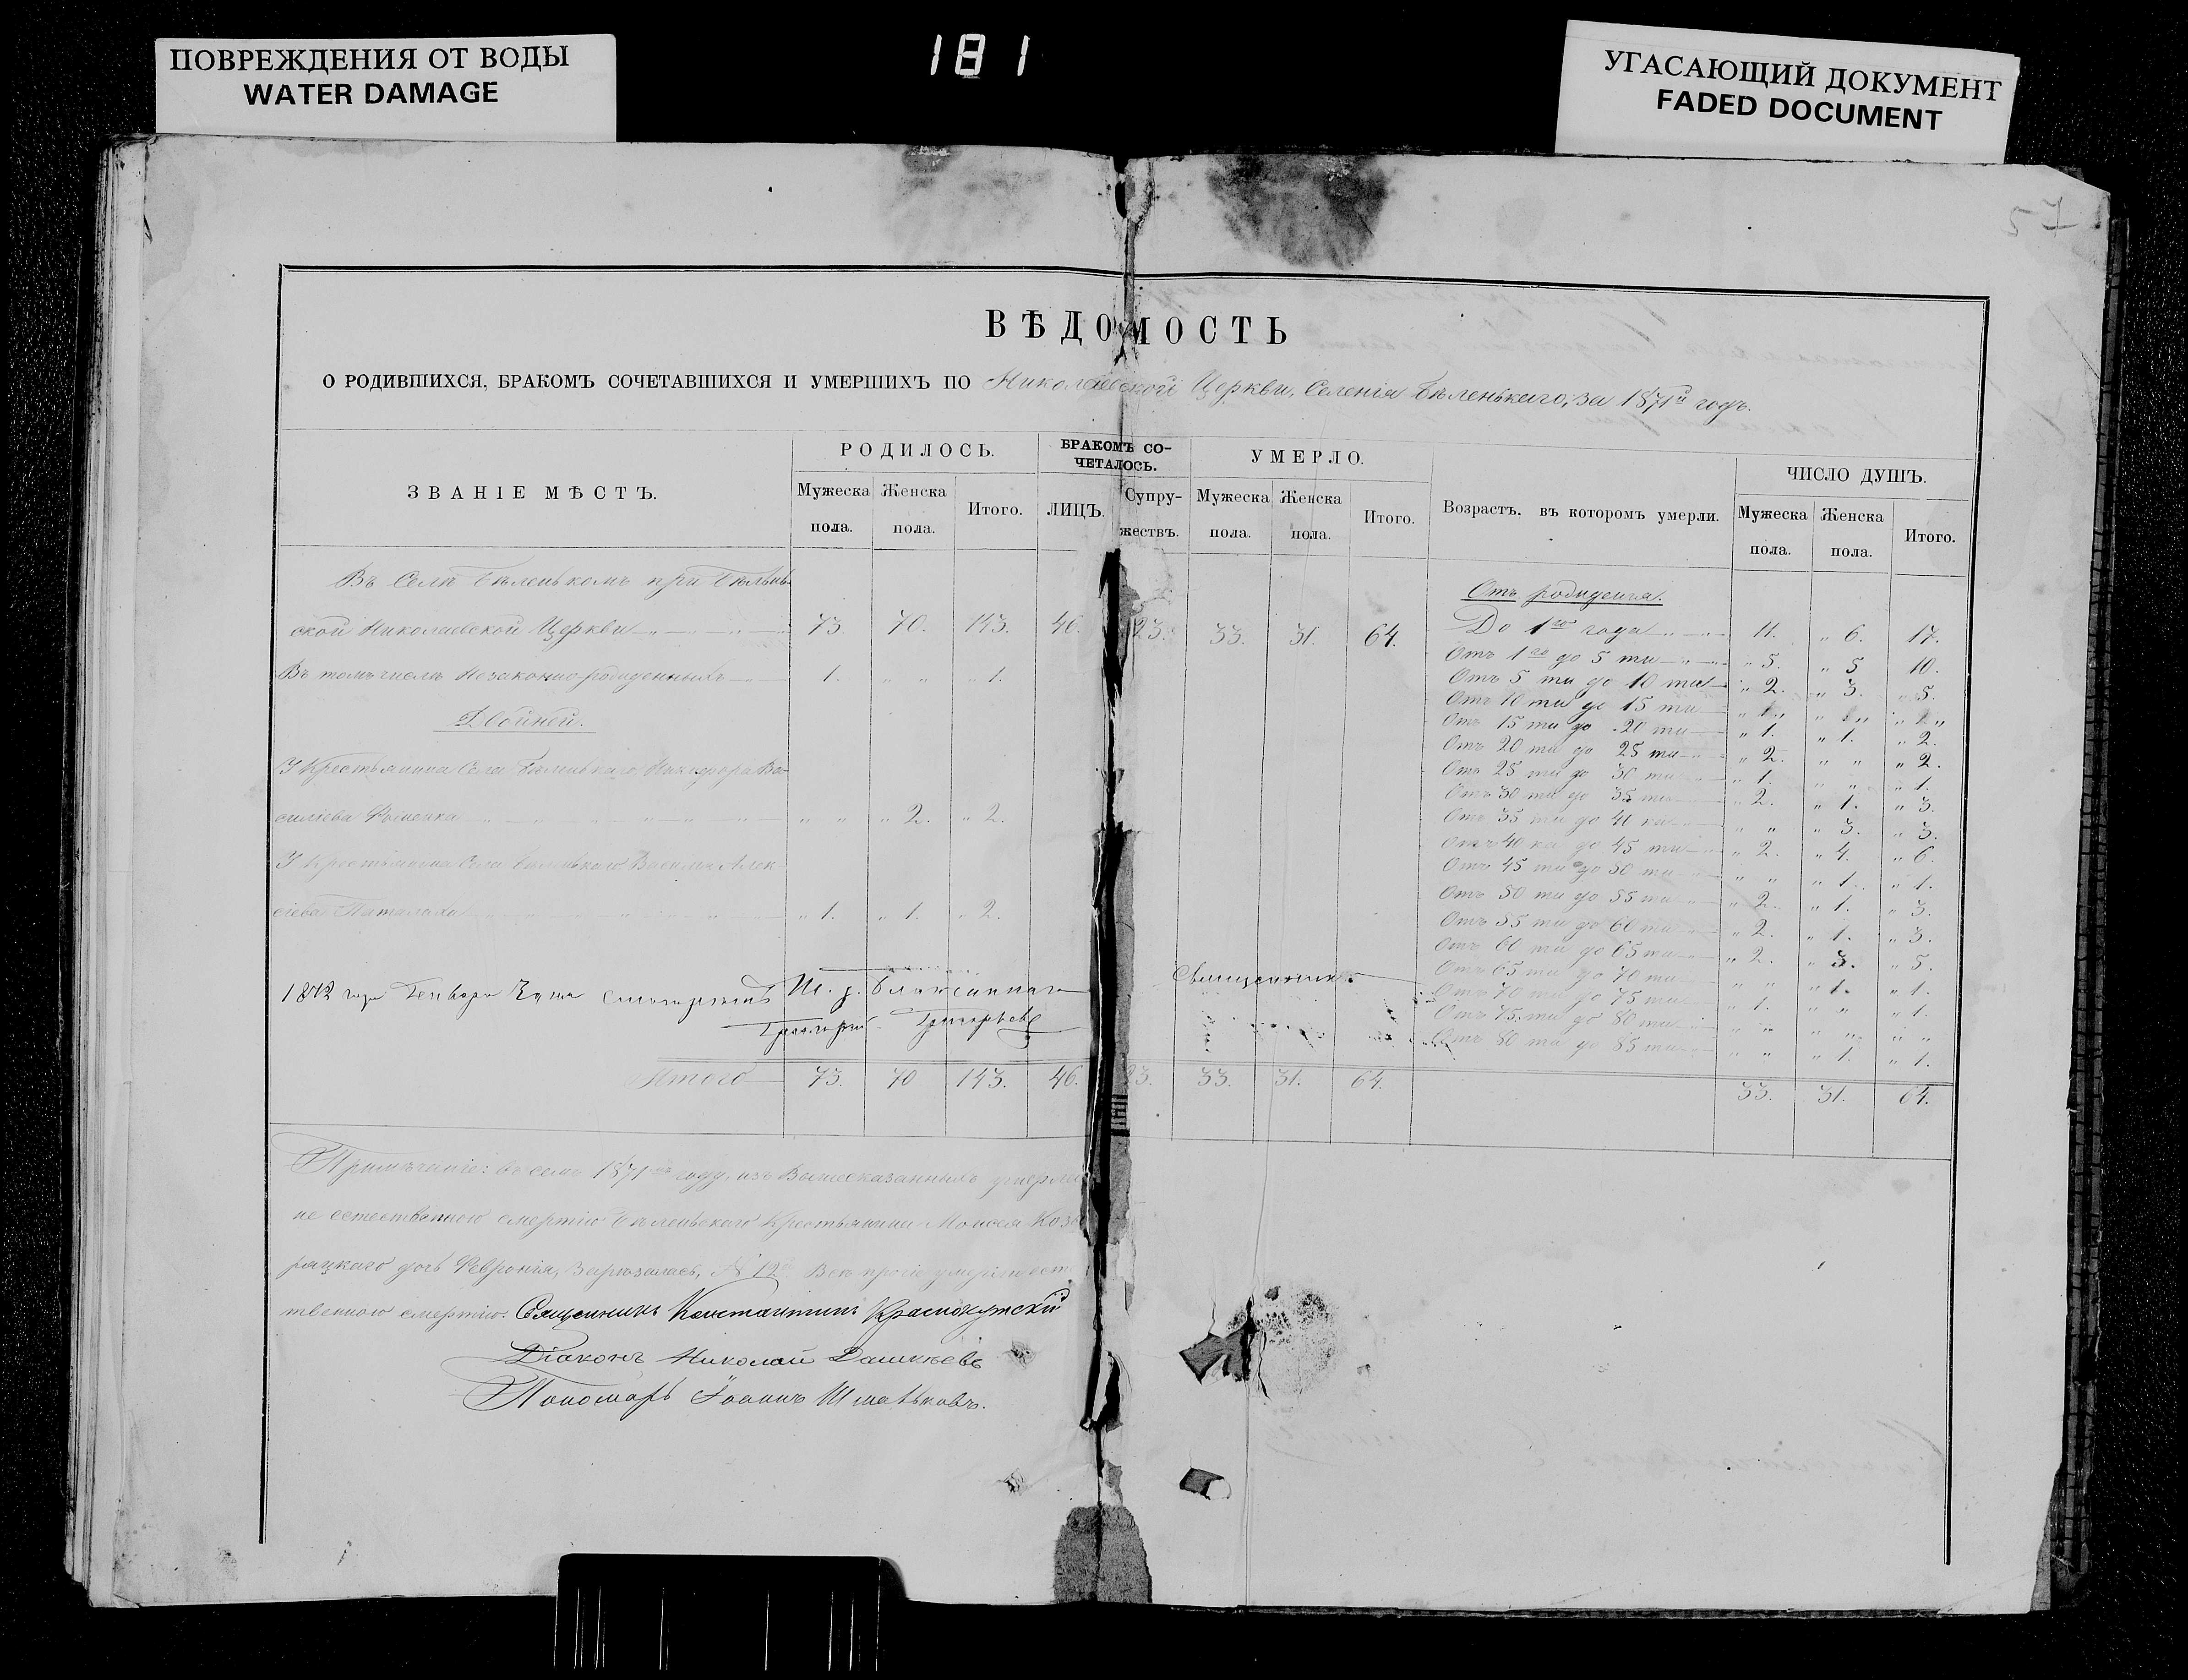 ПОВРЕЖДЕНИЯ ОТ ВОДЫ
WATER DAMAGE
181
УГАСАЮЩИЙ ДОКУМЕНТ
FADED DOCUMENT
57
ВѢДОМОСТЬ
О РОДИВШИХСЯ, БРАКОМЪ СОЧЕТАВШИХСЯ И УМЕРШИХЪ ПО Николаевской Церкви, Селенія Бѣленькаго, за 1871й годъ.
ЗВАНІЕ МѢСТЪ.
РОДИЛОСЬ.
Мужеска пола.
Женска пола.
Итого.
БРАКОМЪ СО-
ЧЕТАЛОСЬ.
ЛИЦЪ.
Супру-
жествъ.
УМЕРЛО.
Мужеска пола.
Женска пола.
Итого.
Возрастъ. въ которомъ умерли.
ЧИСЛО ДУШЪ.
Мужеска пола.
Женска пола.
Итого.
Въ Селѣ Бѣленькомъ при Бѣлень-
ской Николаевской Церкви 73 70. 143. 46. 23. 33. 31. 64.
Въ томъ числѣ Незаконно-рожденныхъ 1. " " " 1.
Двойней.
У Крестьянина Села Бѣленькаго Никифора Ва-
силіева " " " 2. " 2.
У Крестьянина Села Бѣленькаго Василія Алек-
сіева " 1. " 1. " 2.
Отъ рожденія.
До 1го года 11. " 6. 17.
Отъ 1го до 5 ти " 5. " 5 10.
Отъ 5 ти до 10 ти " 2. " 3. " 5.
Отъ 10 ти до 15 ти
Отъ 15 ти до 20 ти " 1. " 1. " 2.
Отъ 20 ти до 25 ти " 2. " " " 2.
Отъ 25 ти до 30 ти " 1. " " " 1.
Отъ 30 ти до 35 ти " 2. " 1. " 3.
Отъ 35 ти до 40 ка " " " 3. " 3.
Отъ 40 ка до 45 ти " 2. " 4. " 6.
Отъ 45 ти до 50 ти " " " 1. " 1.
Отъ 50 ти до 55 ти " 2. " 1. " 3.
Отъ 55 ти до 60 ти " 2. " 1. " 3.
Отъ 60 ти до 65 ти " 2. " 3. " 5.
Отъ 65 ти до 70 ти " " " 1. " 1.
Отъ 70 ти до 75 ти " 1. " " " 1.
Отъ 75 ти до 80 ти " " " " " "
Отъ 80 ти до 85 ти " " " 1. " 1.
1872 года Генваря Священникъ
Григорій Григорьевъ
Итого 73. 70 143. 46. 23. 33. 31. 64. 33. 31. 64.
Примѣчаніе: въ семъ 1871мъ году, изъ Вышесказанныхъ умерла
не естественною смертію Бѣленьскаго Крестьянина Моисея
дочь Февронія, зарѣзалась, № 12й. Всѣ прочіе умерли есте
твенною смертію. Священникъ Константинъ Краснокутскій
Діаконъ Николай Дашкѣевъ
Пономарь Іоаннъ Шматьковъ.